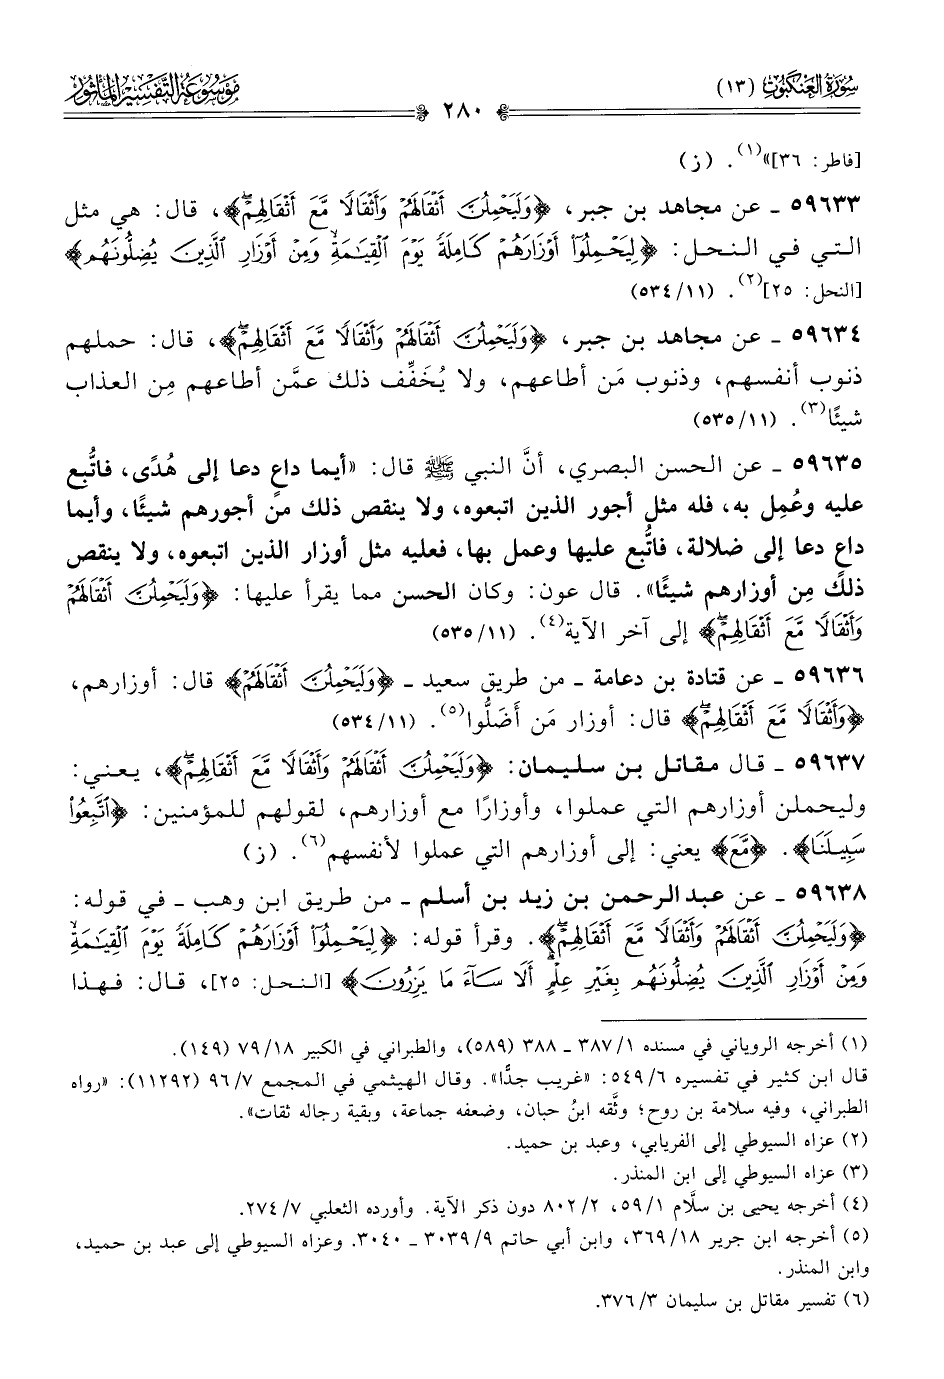 سُورَةُ العَنكَبُوت (١٣)
مَوْسُوعَة التَّفْسِيرِ المَأْثُور
٢٨٠
[فاطر: ٣٦]»(١). (ز)
٥٩٦٣٣ ـ عن مجاهد بن جبر، ﴿وَلَيَحْمِلُنَّ أَثْقَالَهُمْ وَأَثْقَالًا مَّعَ أَثْقَالِهِمْ﴾، قال: هي مثل
التي في النحل: ﴿لِيَحْمِلُوٓا۟ أَوْزَارَهُمْ كَامِلَةً يَوْمَ ٱلْقِيَٰمَةِ وَمِنْ أَوْزَارِ ٱلَّذِينَ يُضِلُّونَهُم﴾
[النحل: ٢٥](٢). (١١/ ٥٣٤)
٥٩٦٣٤ ـ عن مجاهد بن جبر، ﴿وَلَيَحْمِلُنَّ أَثْقَالَهُمْ وَأَثْقَالًا مَّعَ أَثْقَالِهِمْ﴾، قال: حملهم
ذنوب أنفسهم، وذنوب مَن أطاعهم، ولا يُخَفِّف ذلك عمَّن أطاعهم مِن العذاب
شيئًا(٣). (١١/ ٥٣٥)
٥٩٦٣٥ ـ عن الحسن البصري، أنَّ النبي ﷺ قال: «أيما داعٍ دعا إلى هُدًى، فاتُّبع
عليه وعُمِل به، فله مثل أجور الذين اتبعوه، ولا ينقص ذلك من أجورهم شيئًا، وأيما
داعٍ دعا إلى ضلالة، فاتُّبع عليها وعمل بها، فعليه مثل أوزار الذين اتبعوه، ولا ينقص
ذلك مِن أوزارهم شيئًا». قال عون: وكان الحسن مما يقرأ عليها: ﴿وَلَيَحْمِلُنَّ أَثْقَالَهُمْ
وَأَثْقَالًا مَّعَ أَثْقَالِهِمْ﴾ إلى آخر الآية(٤). (١١/ ٥٣٥)
٥٩٦٣٦ ـ عن قتادة بن دعامة ـ من طريق سعيد ـ ﴿وَلَيَحْمِلُنَّ أَثْقَالَهُمْ﴾ قال: أوزارهم،
﴿وَأَثْقَالًا مَّعَ أَثْقَالِهِمْ﴾ قال: أوزار مَن أَضَلُّوا(٥). (١١/ ٥٣٤)
٥٩٦٣٧ ـ قال مقاتل بن سليمان: ﴿وَلَيَحْمِلُنَّ أَثْقَالَهُمْ وَأَثْقَالًا مَّعَ أَثْقَالِهِمْ﴾، يعني:
وليحملن أوزارهم التي عملوا، وأوزارًا مع أوزارهم، لقولهم للمؤمنين: ﴿ٱتَّبِعُوا۟
سَبِيلَنَا﴾. ﴿مَّعَ﴾ يعني: إلى أوزارهم التي عملوا لأنفسهم(٦). (ز)
٥٩٦٣٨ ـ عن عبدالرحمن بن زيد بن أسلم ـ من طريق ابن وهب ـ في قوله:
﴿وَلَيَحْمِلُنَّ أَثْقَالَهُمْ وَأَثْقَالًا مَّعَ أَثْقَالِهِمْ﴾. وقرأ قوله: ﴿لِيَحْمِلُوٓا۟ أَوْزَارَهُمْ كَامِلَةً يَوْمَ ٱلْقِيَٰمَةِ
وَمِنْ أَوْزَارِ ٱلَّذِينَ يُضِلُّونَهُم بِغَيْرِ عِلْمٍ أَلَا سَآءَ مَا يَزِرُونَ﴾ [النحل: ٢٥]، قال: فهذا
(١) أخرجه الروياني في مسنده ١/ ٣٨٧ ـ ٣٨٨ (٥٨٩)، والطبراني في الكبير ١٨/ ٧٩ (١٤٩).
قال ابن كثير في تفسيره ٦/ ٥٤٩: «غريب جدًّا». وقال الهيثمي في المجمع ٧/ ٩٦ (١١٢٩٢): «رواه
الطبراني، وفيه سلامة بن روح؛ وثَّقه ابنُ حبان، وضعفه جماعة، وبقية رجاله ثقات».
(٢) عزاه السيوطي إلى الفريابي، وعبد بن حميد.
(٣) عزاه السيوطي إلى ابن المنذر.
(٤) أخرجه يحيى بن سلَّام ١/ ٥٩، ٢/ ٨٠٢ دون ذكر الآية. وأورده الثعلبي ٧/ ٢٧٤.
(٥) أخرجه ابن جرير ١٨/ ٣٦٩، وابن أبي حاتم ٩/ ٣٠٣٩ ـ ٣٠٤٠. وعزاه السيوطي إلى عبد بن حميد،
وابن المنذر.
(٦) تفسير مقاتل بن سليمان ٣/ ٣٧٦.